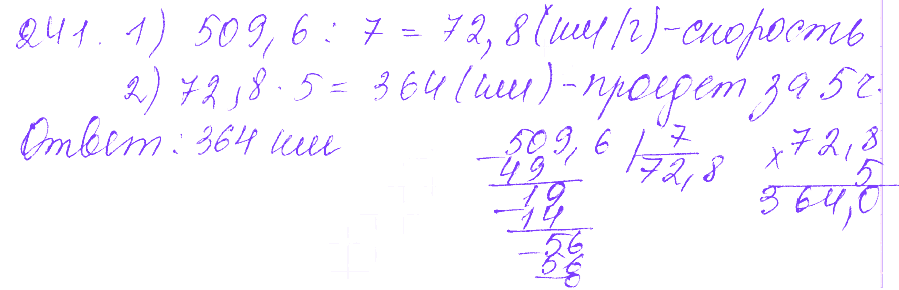 241. 1) 509,6 : 7 = 72,8 (км/ч) - скорость
2) 72,8 · 5 = 364 (км) - проедет за 5 ч.
Ответ: 364 км
- 509,6 | 7
49 72,8
- 19
14
- 56
56
0
× 72,8
5
364,0